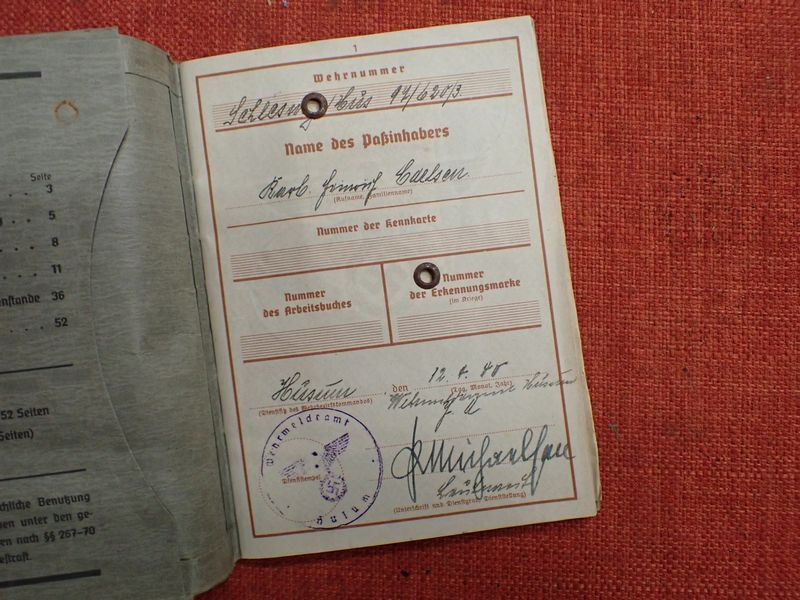 Seite
3
5
8
11
enstande 36
52
52 Seiten
Seiten)
chliche Benutzung
en unter den ge-
en nach §§ 267-70
estraft.
1
Wehrnummer
97/620/3
Name des Paßinhabers
Karl Heinrich
(Rufname, Familienname)
Nummer der Kennkarte
Nummer
des Arbeitsbuches
Nummer
der Erkennungsmarke
(im Kriege)
Husum den 12. 4. 40
(Dienstsitz des Wehrbezirkskommandos) (Tag, Monat, Jahr)
Husum
Wehrmeldeamt
Dienststempel
Michaelsen
(Unterschrift und Dienstgrad, Dienststellung)